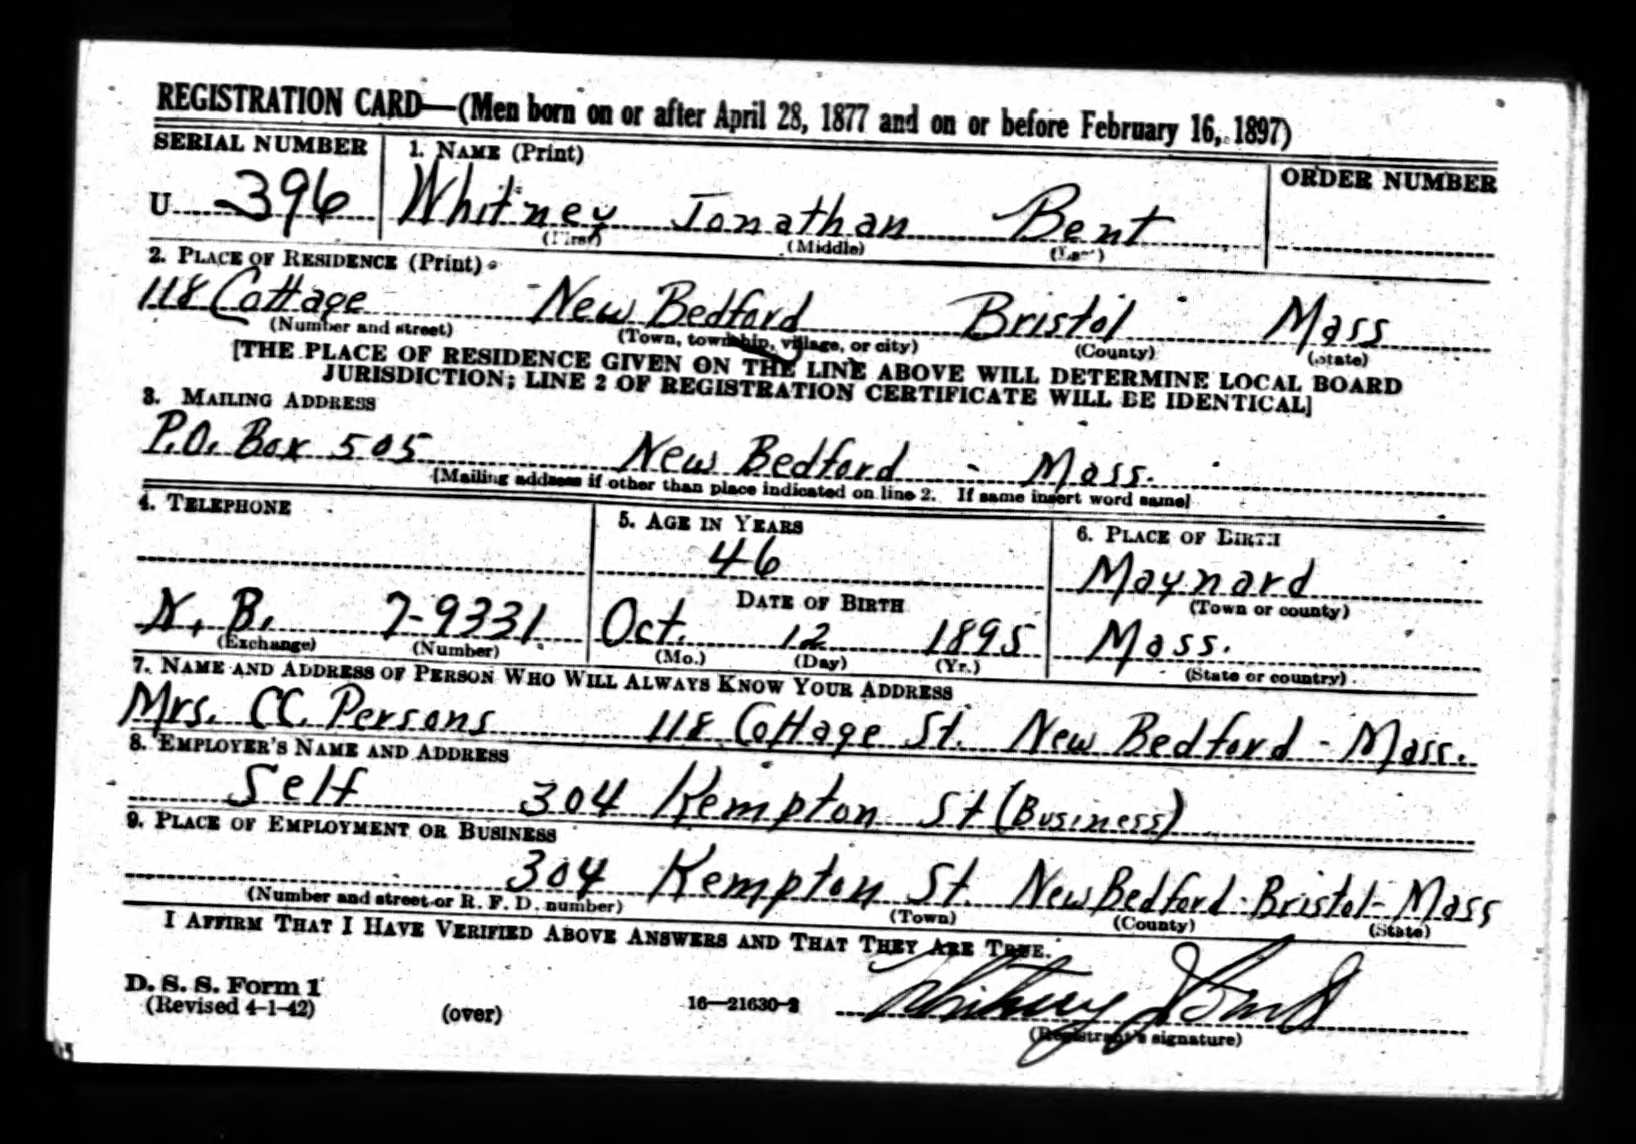 REGISTRATION CARD—(Men born on or after April 28, 1877 and on or before February 16, 1897)
SERIAL NUMBER 1. NAME (Print) ORDER NUMBER
U 396 Whitney Jonathan Bent
(First) (Middle) (Last)
2. PLACE OF RESIDENCE (Print)
118 Cottage New Bedford Bristol Mass
(Number and street) (Town, township, village, or city) (County) (State)
[THE PLACE OF RESIDENCE GIVEN ON THE LINE ABOVE WILL DETERMINE LOCAL BOARD
JURISDICTION; LINE 2 OF REGISTRATION CERTIFICATE WILL BE IDENTICAL]
3. MAILING ADDRESS
P.O. Box 505 New Bedford - Mass.
[Mailing address if other than place indicated on line 2. If same insert word same]
4. TELEPHONE 5. AGE IN YEARS 6. PLACE OF BIRTH
46 Maynard
DATE OF BIRTH (Town or county)
N. B. 7-9331 Oct. 12 1895 Mass.
(Exchange) (Number) (Mo.) (Day) (Yr.) (State or country)
7. NAME AND ADDRESS OF PERSON WHO WILL ALWAYS KNOW YOUR ADDRESS
Mrs. CC. Persons 118 Cottage St. New Bedford - Mass.
8. EMPLOYER'S NAME AND ADDRESS
Self 304 Kempton St (Business)
9. PLACE OF EMPLOYMENT OR BUSINESS
304 Kempton St. New Bedford - Bristol - Mass
(Number and street or R. F. D. number) (Town) (County) (State)
I AFFIRM THAT I HAVE VERIFIED ABOVE ANSWERS AND THAT THEY ARE TRUE.
D. S. S. Form 1
(Revised 4-1-42) (over) 16—21630-2 Whitney J Bent
(Registrant's signature)